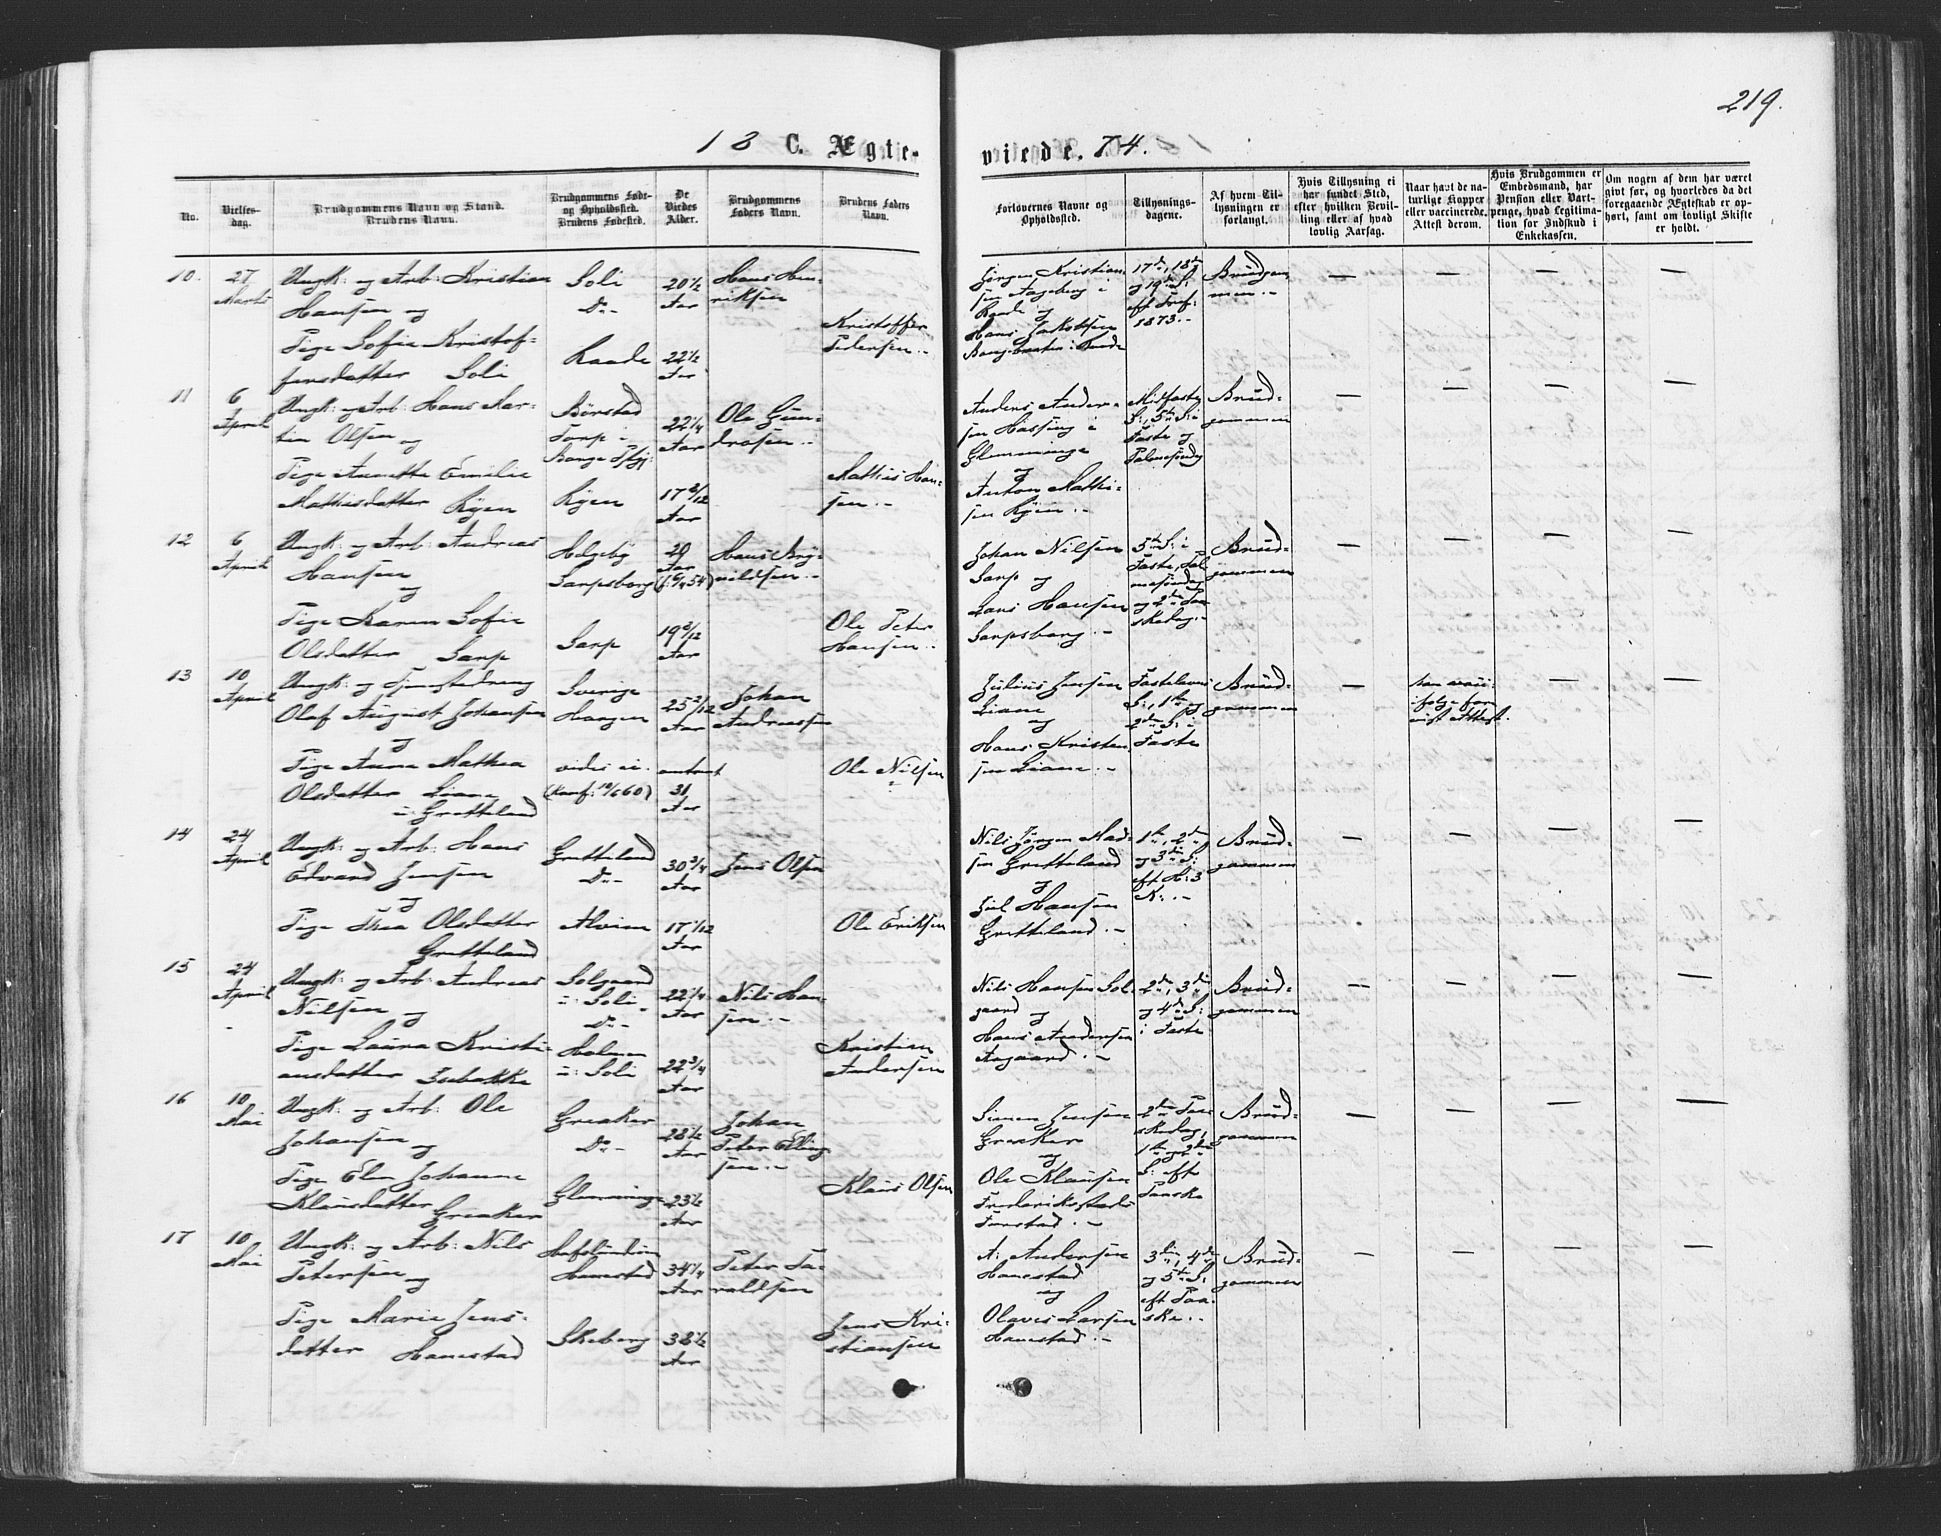 219.
18 C. Ægte-
viede. 74.
No.
Vielses-
dag.
Brudgommens Navn og Stand.
Brudens Navn.
Brudgommens Føde-
og Opholdssted.
Brudens Fødested.
De
Viedes
Alder.
Brudgommens
Faders Navn.
Brudens Faders
Navn.
Forlovernes Navne og
Opholdssted.
Tillysnings-
dagene.
Af hvem Til-
lysningen er
forlangt.
Hvis Tillysning ei
har fundet Sted,
efter hvilken Bevil-
ling eller af hvad
lovlig Aarsag.
Naar havt de na-
turlige Kopper
eller vaccinerede.
Attest derom.
Hvis Brudgommen er
Embedsmand, har
Pension eller Vart-
penge, hvad Legitima-
tion for Indskud i
Enkekassen.
Om nogen af dem har været
givt før, og hvorledes da det
foregaaende Ægteskab er op-
hørt, samt om lovligt Skifte
er holdt.
10.
27
Marts
Ungk: og Arb: Kristian
Hansen og
Pige Sofie Kristof-
fersdatter Soli
Soli
Do -
Raade
20 1/2
Aar
22 1/2
Aar
Hans Hen-
riksen
Kristoffer
Pedersen.-
Jørgen Kristian-
sen Aageberg i
Raade og
Hans Jakobsen
i Raade
17de, 18de
og 19de S:
eft Tref:
1873.-
Brudgom-
men.-
— — — —
11
6
April
Ungk: og Arb: Hans Mar-
tin Olsen og
Pige Anette Emilie
Mathisdatter Kjøen
Børstad
Torp i
Borge Pgj:
Kjøen
22 1/4
Aar
17 8/12
Aar
Ole Gun-
drosen.-
Mathis Han-
sen.-
Anders Ander-
sen Hassing i
Glemminge
og
Anton Mathi-
sen Kjøen.-
Midfaste
S:, 5te S: i
Faste og
Palmesøndag
Brud-
gommen
— — — —
12
6
April
Ungk: og Arb: Andreas
Hansen
og
Pige Karen Sofie
Olsdatter Sarp
Helgeby
Sarpsborg
Sarp
20
Aar
(f: 6/4 54)
19 8/12
Aar
Hans Bry-
nildsen.-
Ole Peter
Hansen.-
Johan Nilsen
Sarp og
Lars Hansen
Sarpsborg.-
5te S: i
Faste, Pal-
mesøndag
og 2den Paa-
skedag.-
Brud-
gommen
— — — —
13
10
April
Ungk: og Tjenestedreng
Olaf August Johansen
og
Pige Anne Mathea
Olsdatter Liane
u: Gretteland
Sverige
Haugen
vides ei.
(Konf: 10/6 60)
25 2/12
Aar
omtrent
31
Aar
Johan
Andreassen
Ole Nilsen
Julius Jensen
Liane
og
Hans Kristen-
sen Liane.-
Fastelavns
S:, 1ste og
2den S: i
Faste
Brud-
gommen
han vacc:
ifølge frem-
vist Attest.
— — —
14
24
April
Ungk: og Arb: Hans
Edvard Jensen
og
Pige Thea Olsdatter
Gretteland
Gretteland
Do -
Alvim
30 3/4
Aar
17 1/12
Aar
Jens Olsen
Ole Eriksen
Nils Jørgen Mad-
sen Gretteland
og
Juel Hansen
Gretteland.-
1ste, 2den
og 3die S:
eft H: 3
K:.-
Brud-
gommen
— — — —
15
24
April
Ungk: og Arb: Andreas
Nilsen og
Pige Laura Kristi-
ansdatter Isebakke
Solgaard
u: Soli
Do -
Holmen
u: Soli
22 1/4
Aar
22 3/4
Aar
Nils Han-
sen.-
Kristian
Andersen
Nils Hansen Sol-
gaard og
Hans Andersen
Aagaard.-
2den, 3die
og 4de S:
i Faste
Brud-
gommen
— — — —
16
10
Mai
Ungk: og Arb: Ole
Johansen og
Pige Elen Johanne
Klausdatter Greaker
Greaker
Do -
Glemminge
28 1/2
Aar
23 1/2
Aar
Johan
Peter Elling-
sen.-
Klaus Olsen
Simen Jensen
Greaker
og
Ole Klausen
Frederikstads
Forstad.-
2den Paa-
skedag,
1ste og 2den
S: eft
Paaske
Brud-
gommen
— — — —
17
10
Mai
Ungk: og Arb: Nils
Petersen og
Pige Marie Jens-
datter Hanestad
Hafslundsøen
Hanestad
Skeberg
34 1/4
Aar
38 1/2
Aar
Peter Ta-
raldsen
Jens Kri-
stiansen
A: Andersen
Hanestad
og
Olaves Larsen
Hanestad.-
3die, 4de
og 5te S:
eft Paa-
ske.-
Brud-
gommen
— — — —